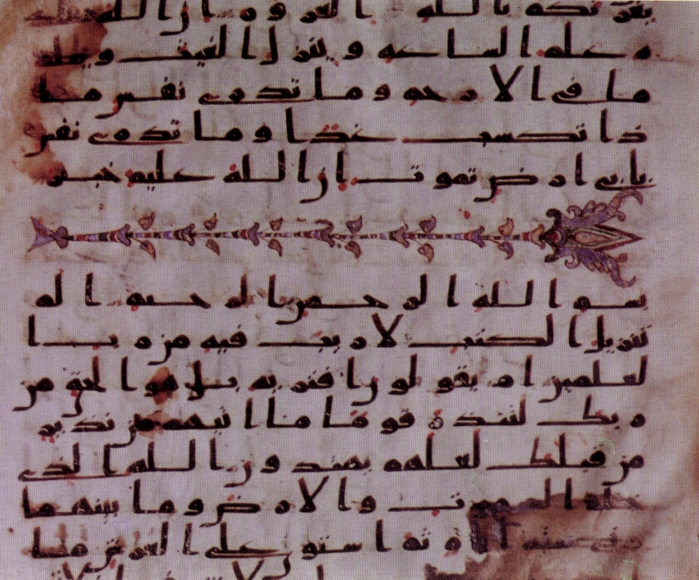 يغرنكم بالله الغرور ان الله عند
ه علم الساعه وينزل الغيث ويعلم
ما في الارحم وما تدري نفس ما
ذا تكسب غدا وما تدري نفس
باي ارض تموت ان الله عليم خبير
بسم الله الرحمن الرحيم الم
تنزيل الكتب لا ريب فيه من رب ا
لعلمين ام يقولون افتريه بل هو الحق من
ربك لتنذر قوما ما اتيهم من نذير
من قبلك لعلهم يهتدون الله الذي
خلق السموت والارض وما بينهما
في ستة ايام ثم استوى على العرش ما